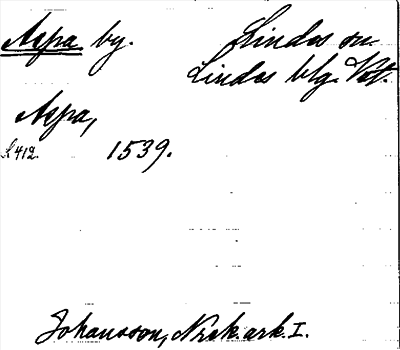 Aspa by.
Lindes sn.
Lindes blg. Vst.
Aspa,
S. 412. 1539.
Johansson, Nzak.ark. I.